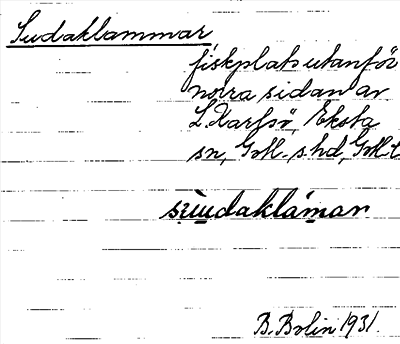 Sudaklammar
fiskplats utanför
norra sidan av
L. Karlsö, Eksta
sn, Gotl. s. hd, Gotl.
B. Bolin 1931.